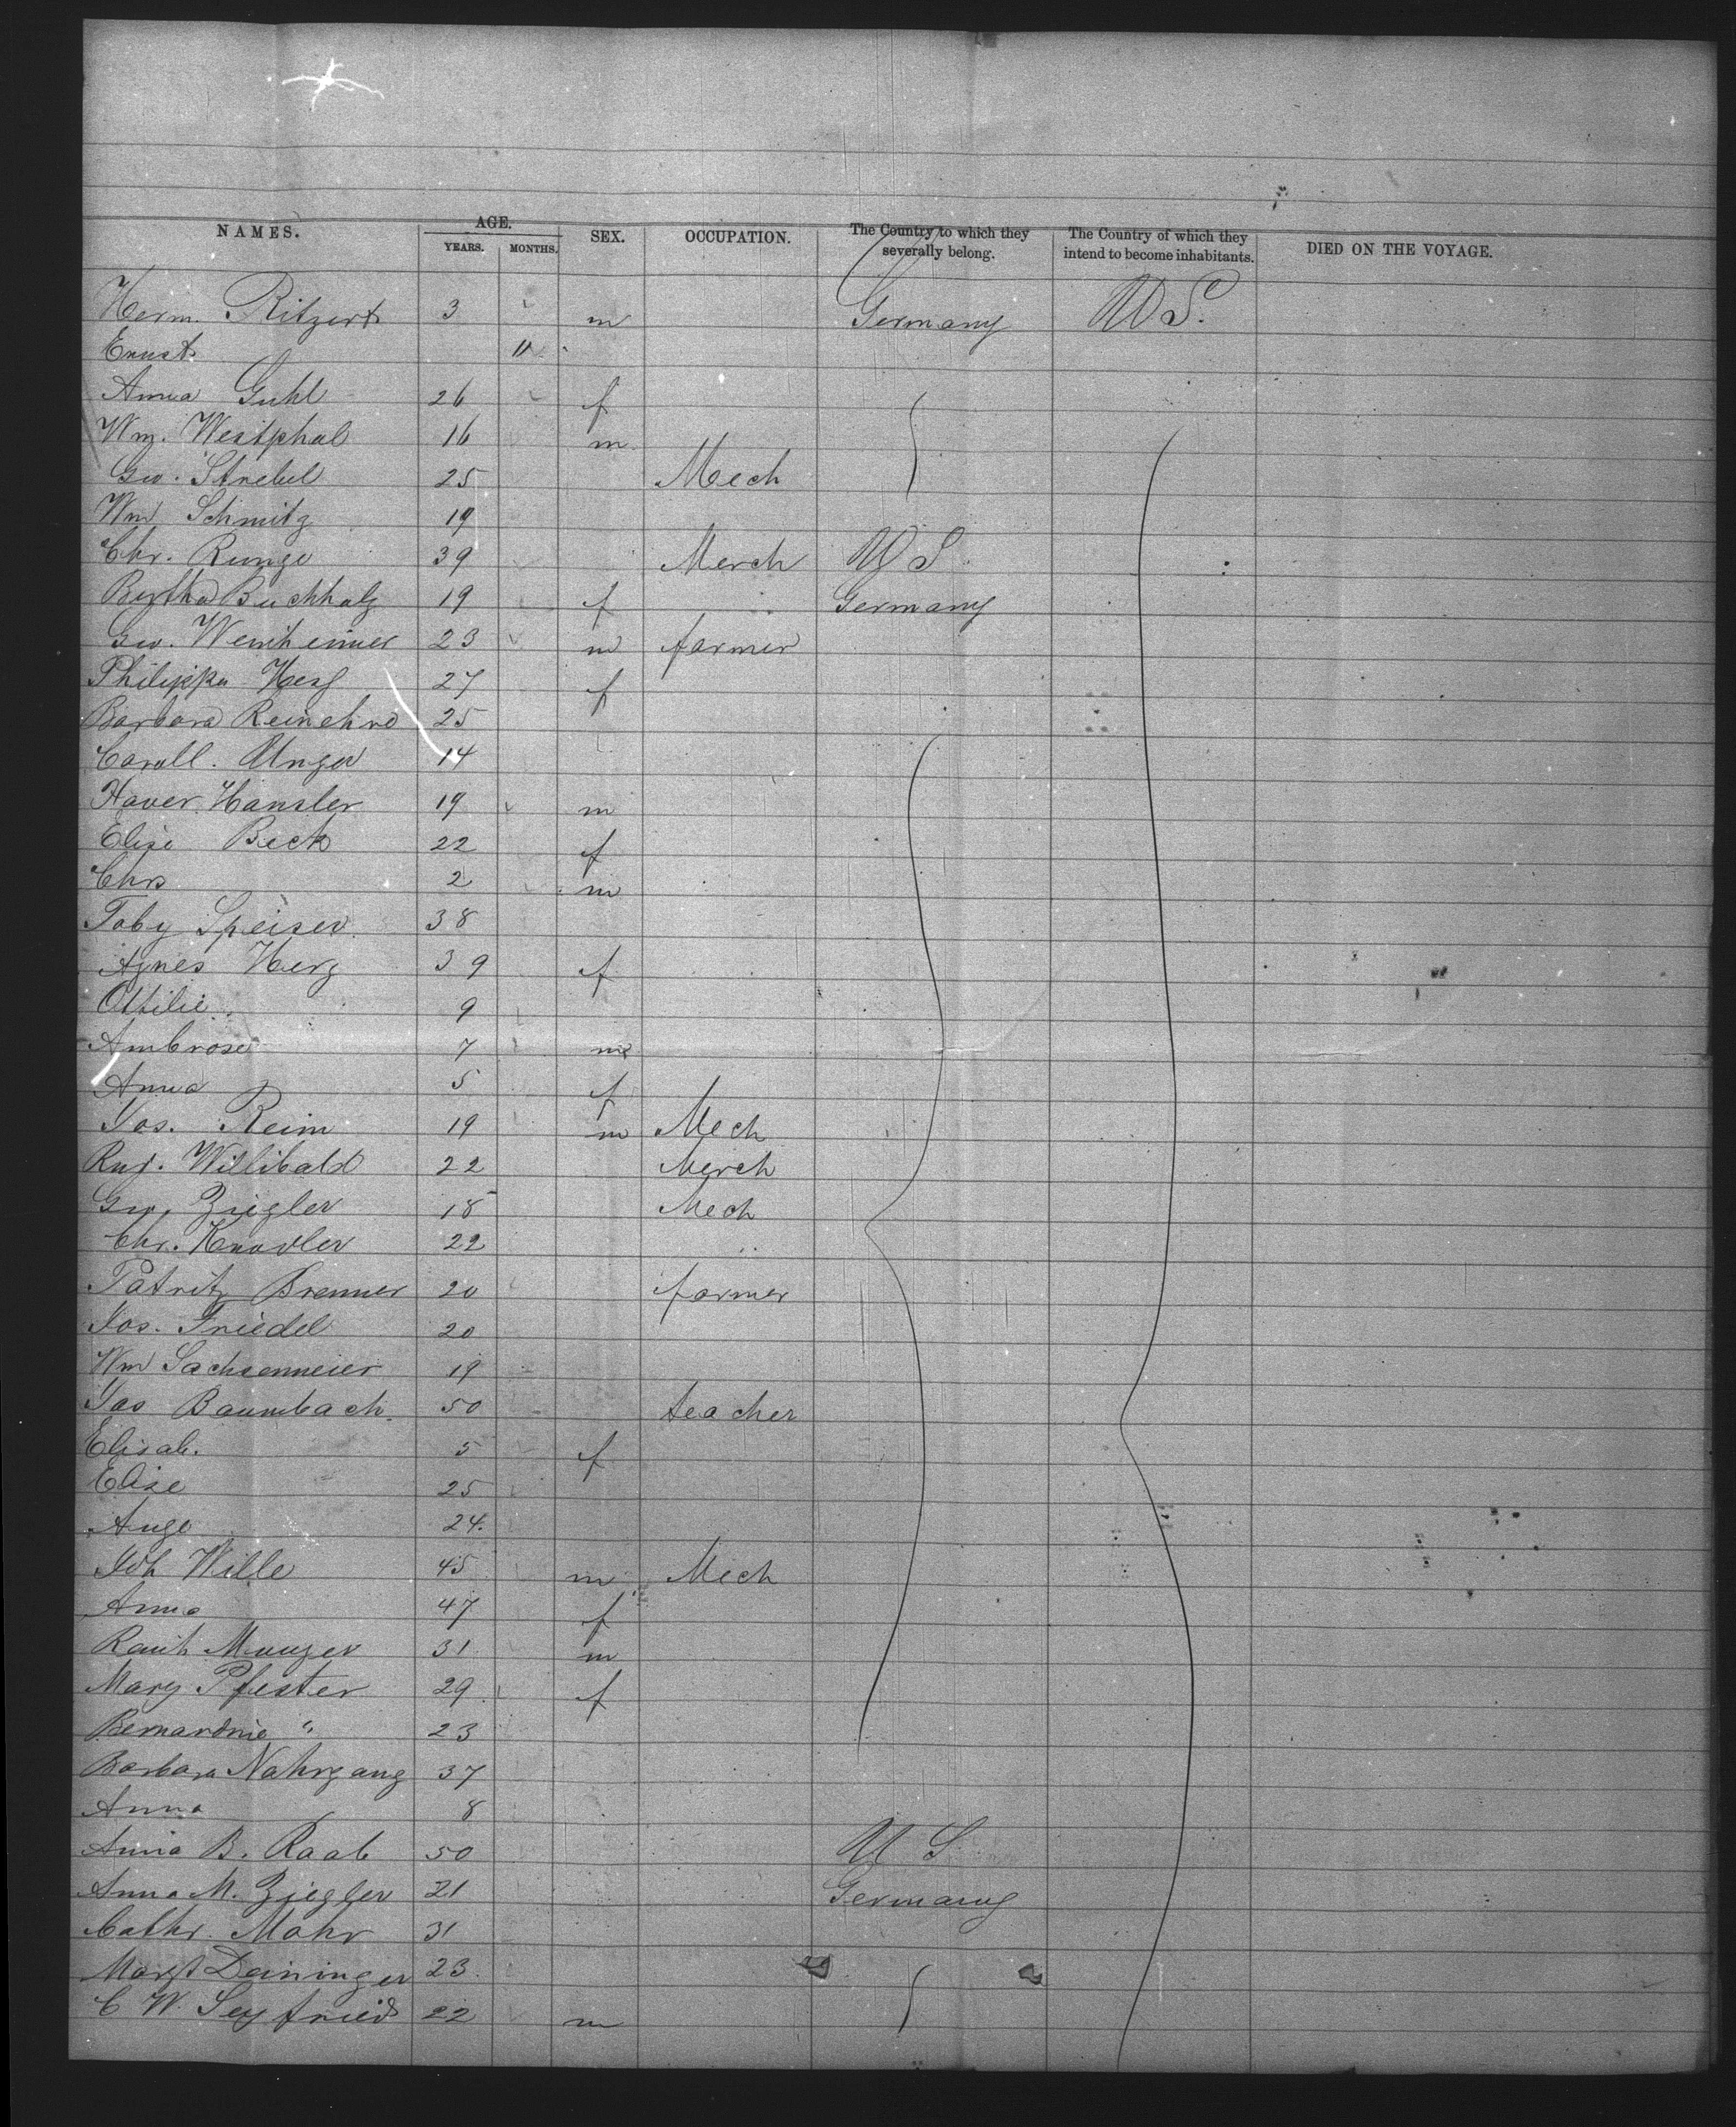 NAMES. AGE. YEARS. MONTHS. SEX. OCCUPATION. The Country to which they severally belong. The Country of which they intend to become inhabitants. DIED ON THE VOYAGE.
Herm. Ritzert 3 m Germany U S.
Ernst 11
Anna Guhl 26 f
Wm. Westphal 16 m
Geo. Strebel 25 Mech
Wm Schmitz 19
Chr. Runge 39 Merch U S.
Bertha Buchholz 19 f Germany
Geo. 23 m farmer
Philippa 27 f
Barbara 25
Caroll. Unger 14
Xaver Hansler 19 m
Elise Beck 22 f
Chrs 2 m
Toby Speiser 38
Agnes Herz 39 f
Ottilie 9
Ambrose 7 m
Anna 5 f
Jos. Reim 19 m Mech
Willibald 22 Merch
Geo. Ziegler 18 Mech
Chr. Knodler 22 "
Patritz Brenner 20 farmer
Jos. Friedel 20
Wm Sachsenmeier 19
Jas Baumbach 50 teacher
Elisab. 5 f
Elise 25
Auge 24.
Joh Wille 45 m Mech
Anna 47 f
31 m
Mary Pfister 29 f
Bernardine " 23
Barbara Nahrgang 37
Anna 8
Anna B. Raab 50 U S
Anna M. Ziegler 21 Germany
Cathr. Mohr 31
Margt Deininger 23.
C W. Seyfried 22 m